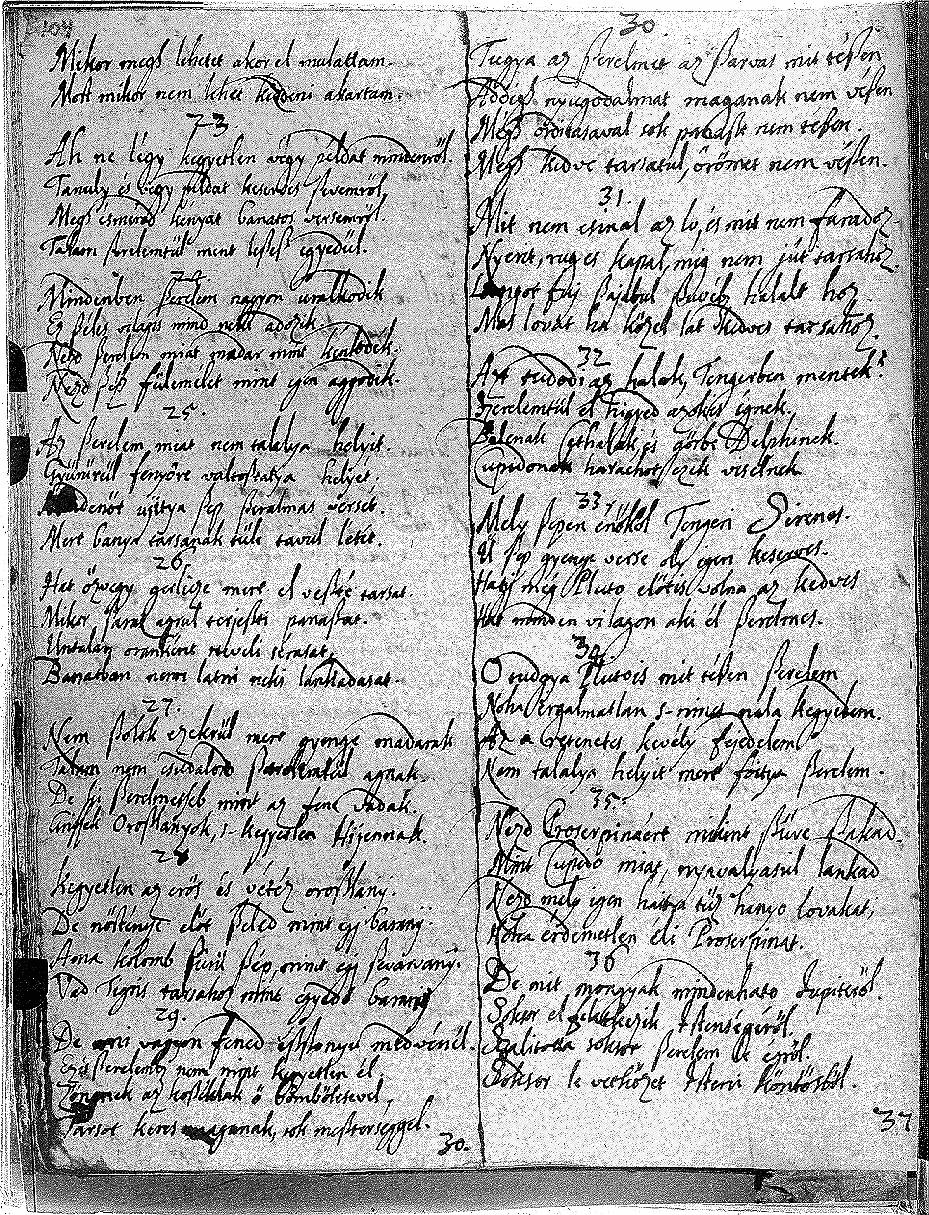 104
Mikor megh lehetet akor el mulattam.
Most mikor nem lehet kezdeni akartam.
23
Ah ne légy kegyetlen végy példat mindenről.
Tanuly és végy példat keserves sevemről,
Megh esmérед kényat banatos versemről.
Talam ßerelemtűl ment leßeß egyedűl.
24
Mindenben ßerelem nagyon uralkodik
Ez ßéles vilagis mind neki adozik
Nézd ßerelem miat madar mint kenlodik.
Nezd ßép fűlemelet mint igen aggodik.
25.
Az ßerelem miat nem talalya helyit.
Gyűrűrűl fenyőre valtoßtatya helyet.
ujitya ßep ßeralmas versét.
Mert banya tarsanak tűle tavul létit.
26.
Hat özvegy gerlicze mere el veßté tarsat.
Mikor ßaraz agrul terjeßti panaßat.
Untalan oränként neveli sérasat,
Banatban nemi latni nehis lankadasat.
27.
Nem ßolok ezekrűl mert gyenge madarak
Talam nem csudalod ßerelemtűl agnak.
De ßerelmeseb mint az fene vadak.
Oroßlanyok, s-kegyetlen Tigrisnek.
28
Kegyetlen az erös és vetéz oroßlany.
De nöstenye elöt ßeled mint egj barany.
Aona kolomb ßinű ßép, mint egj ßivarvany.
Vad Tigris tarsahoz mint egyedö barany
29.
De mi vagyon fened ißßonyu medvénél.
Ez is ßerelembe nem mint kegyetlen él.
Zöngnek az kösziklak ö bömböletevel,
Tarsot keres maganak, sok meßterséggel.
30.
30
Tugya az ßerelmet az ßarvas mit téßen
Addigh nyugodalmat maganak nem véßen
Megh orditasaval sok panaßt nem teßen.
Megh kedve tarsatul, örömet nem véßen.
31.
Mit nem csinal az lo, és mit nem faradoz
Nyerit, rug es kapal, mig nem jut tarsahoz.
Langot fuj ßajabul ßuvéz halalt hoz
Mas lovat ha közel lat kedves tarsahoz.
32
Azt tudodi az halak, Tengerben mentek?
ßerelemtűl el higyed azokis égnek.
Balenak Cethalak, és görbe Delphinek.
Cupidonak harachot ezek viselnek
33.
Mely ßepen énököl Tengeri Sirenes.
U ßep gyenge verse oly igen keserves.
Hagy még Pluto elöttis volna az kedves
Hat minden vilagon aki él ßerelmes.
34.
O tudgya Plutois mit teßen ßerelem
Noha irgalmatlan s-nincs nala kegyelem.
Az a retenetes kevély fejedelem
Nem talalya helyit mert foitya ßerelem.
35.
Nezd Proserpinaért mikint ßüve ßakad.
Mint Cupido miat, nyavalyasul lankad
Nezd mely igen haitja tüz hanyo lovakat,
Noha érdemetlen éli Proserpinat.
36
De mit mongyak mindenhato Jupiterűl.
Soksor el felelkezik Istenségéről.
Szalitotta soksor ßerelem le égről.
Soksor le vetkőzet Isteni köntösből.
37